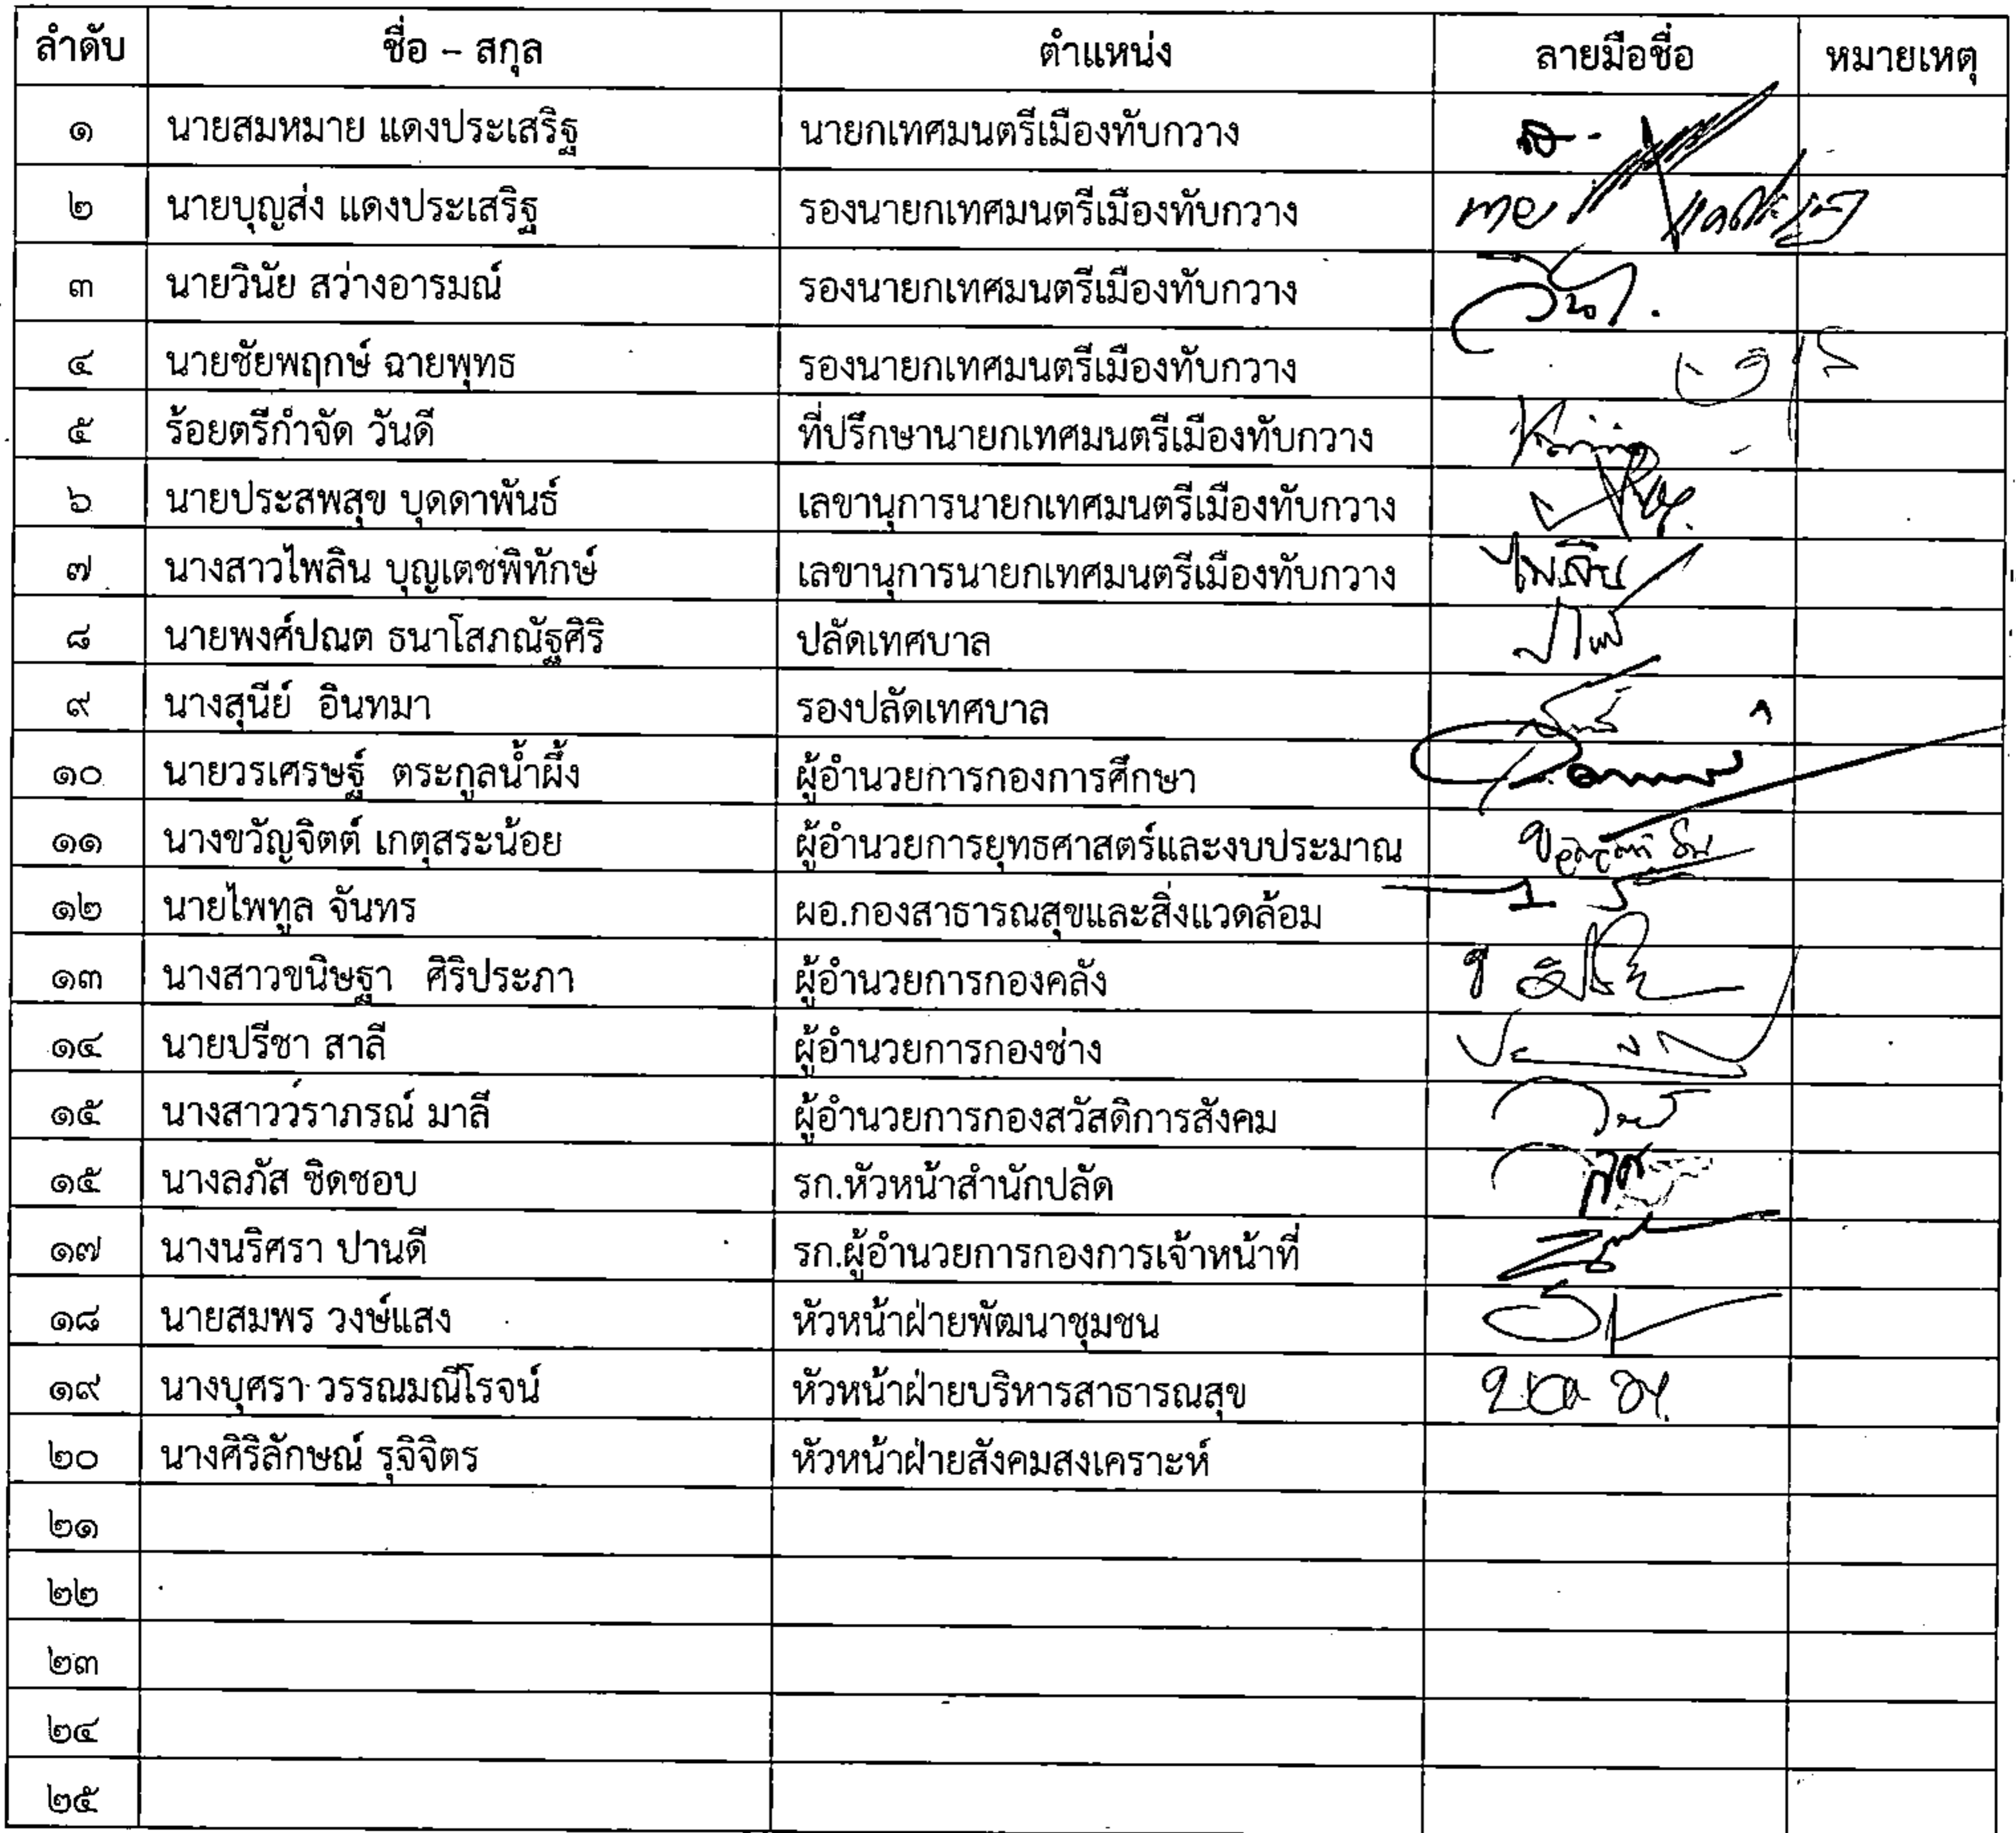 ลำดับ ชื่อ – สกุล ตำแหน่ง ลายมือชื่อ หมายเหตุ
๑ นายสมหมาย แดงประเสริฐ นายกเทศมนตรีเมืองทับกวาง
๒ นายบุญส่ง แดงประเสริฐ รองนายกเทศมนตรีเมืองทับกวาง
๓ นายวินัย สว่างอารมณ์ รองนายกเทศมนตรีเมืองทับกวาง
๔ นายชัยพฤกษ์ ฉายพุทธ รองนายกเทศมนตรีเมืองทับกวาง
๕ ร้อยตรีกำจัด วันดี ที่ปรึกษานายกเทศมนตรีเมืองทับกวาง
๖ นายประสพสุข บุดดาพันธ์ เลขานุการนายกเทศมนตรีเมืองทับกวาง
๗ นางสาวไพลิน บุญเตชพิทักษ์ เลขานุการนายกเทศมนตรีเมืองทับกวาง ไพลิน
๘ นายพงศ์ปณต ธนาโสภณัฐศิริ ปลัดเทศบาล
๙ นางสุนีย์ อินทมา รองปลัดเทศบาล
๑๐ นายวรเศรษฐ์ ตระกูลน้ำผึ้ง ผู้อำนวยการกองการศึกษา
๑๑ นางขวัญจิตต์ เกตุสระน้อย ผู้อำนวยการยุทธศาสตร์และงบประมาณ
๑๒ นายไพทูล จันทร ผอ.กองสาธารณสุขและสิ่งแวดล้อม
๑๓ นางสาวขนิษฐา ศิริประภา ผู้อำนวยการกองคลัง
๑๔ นายปรีชา สาลี ผู้อำนวยการกองช่าง
๑๕ นางสาววราภรณ์ มาลี ผู้อำนวยการกองสวัสดิการสังคม
๑๕ นางลภัส ชิดชอบ รก.หัวหน้าสำนักปลัด
๑๗ นางนริศรา ปานดี รก.ผู้อำนวยการกองการเจ้าหน้าที่
๑๘ นายสมพร วงษ์แสง หัวหน้าฝ่ายพัฒนาชุมชน
๑๙ นางบุศรา วรรณมณีโรจน์ หัวหน้าฝ่ายบริหารสาธารณสุข
๒๐ นางศิริลักษณ์ รุจิจิตร หัวหน้าฝ่ายสังคมสงเคราะห์
๒๑
๒๒
๒๓
๒๔
๒๕